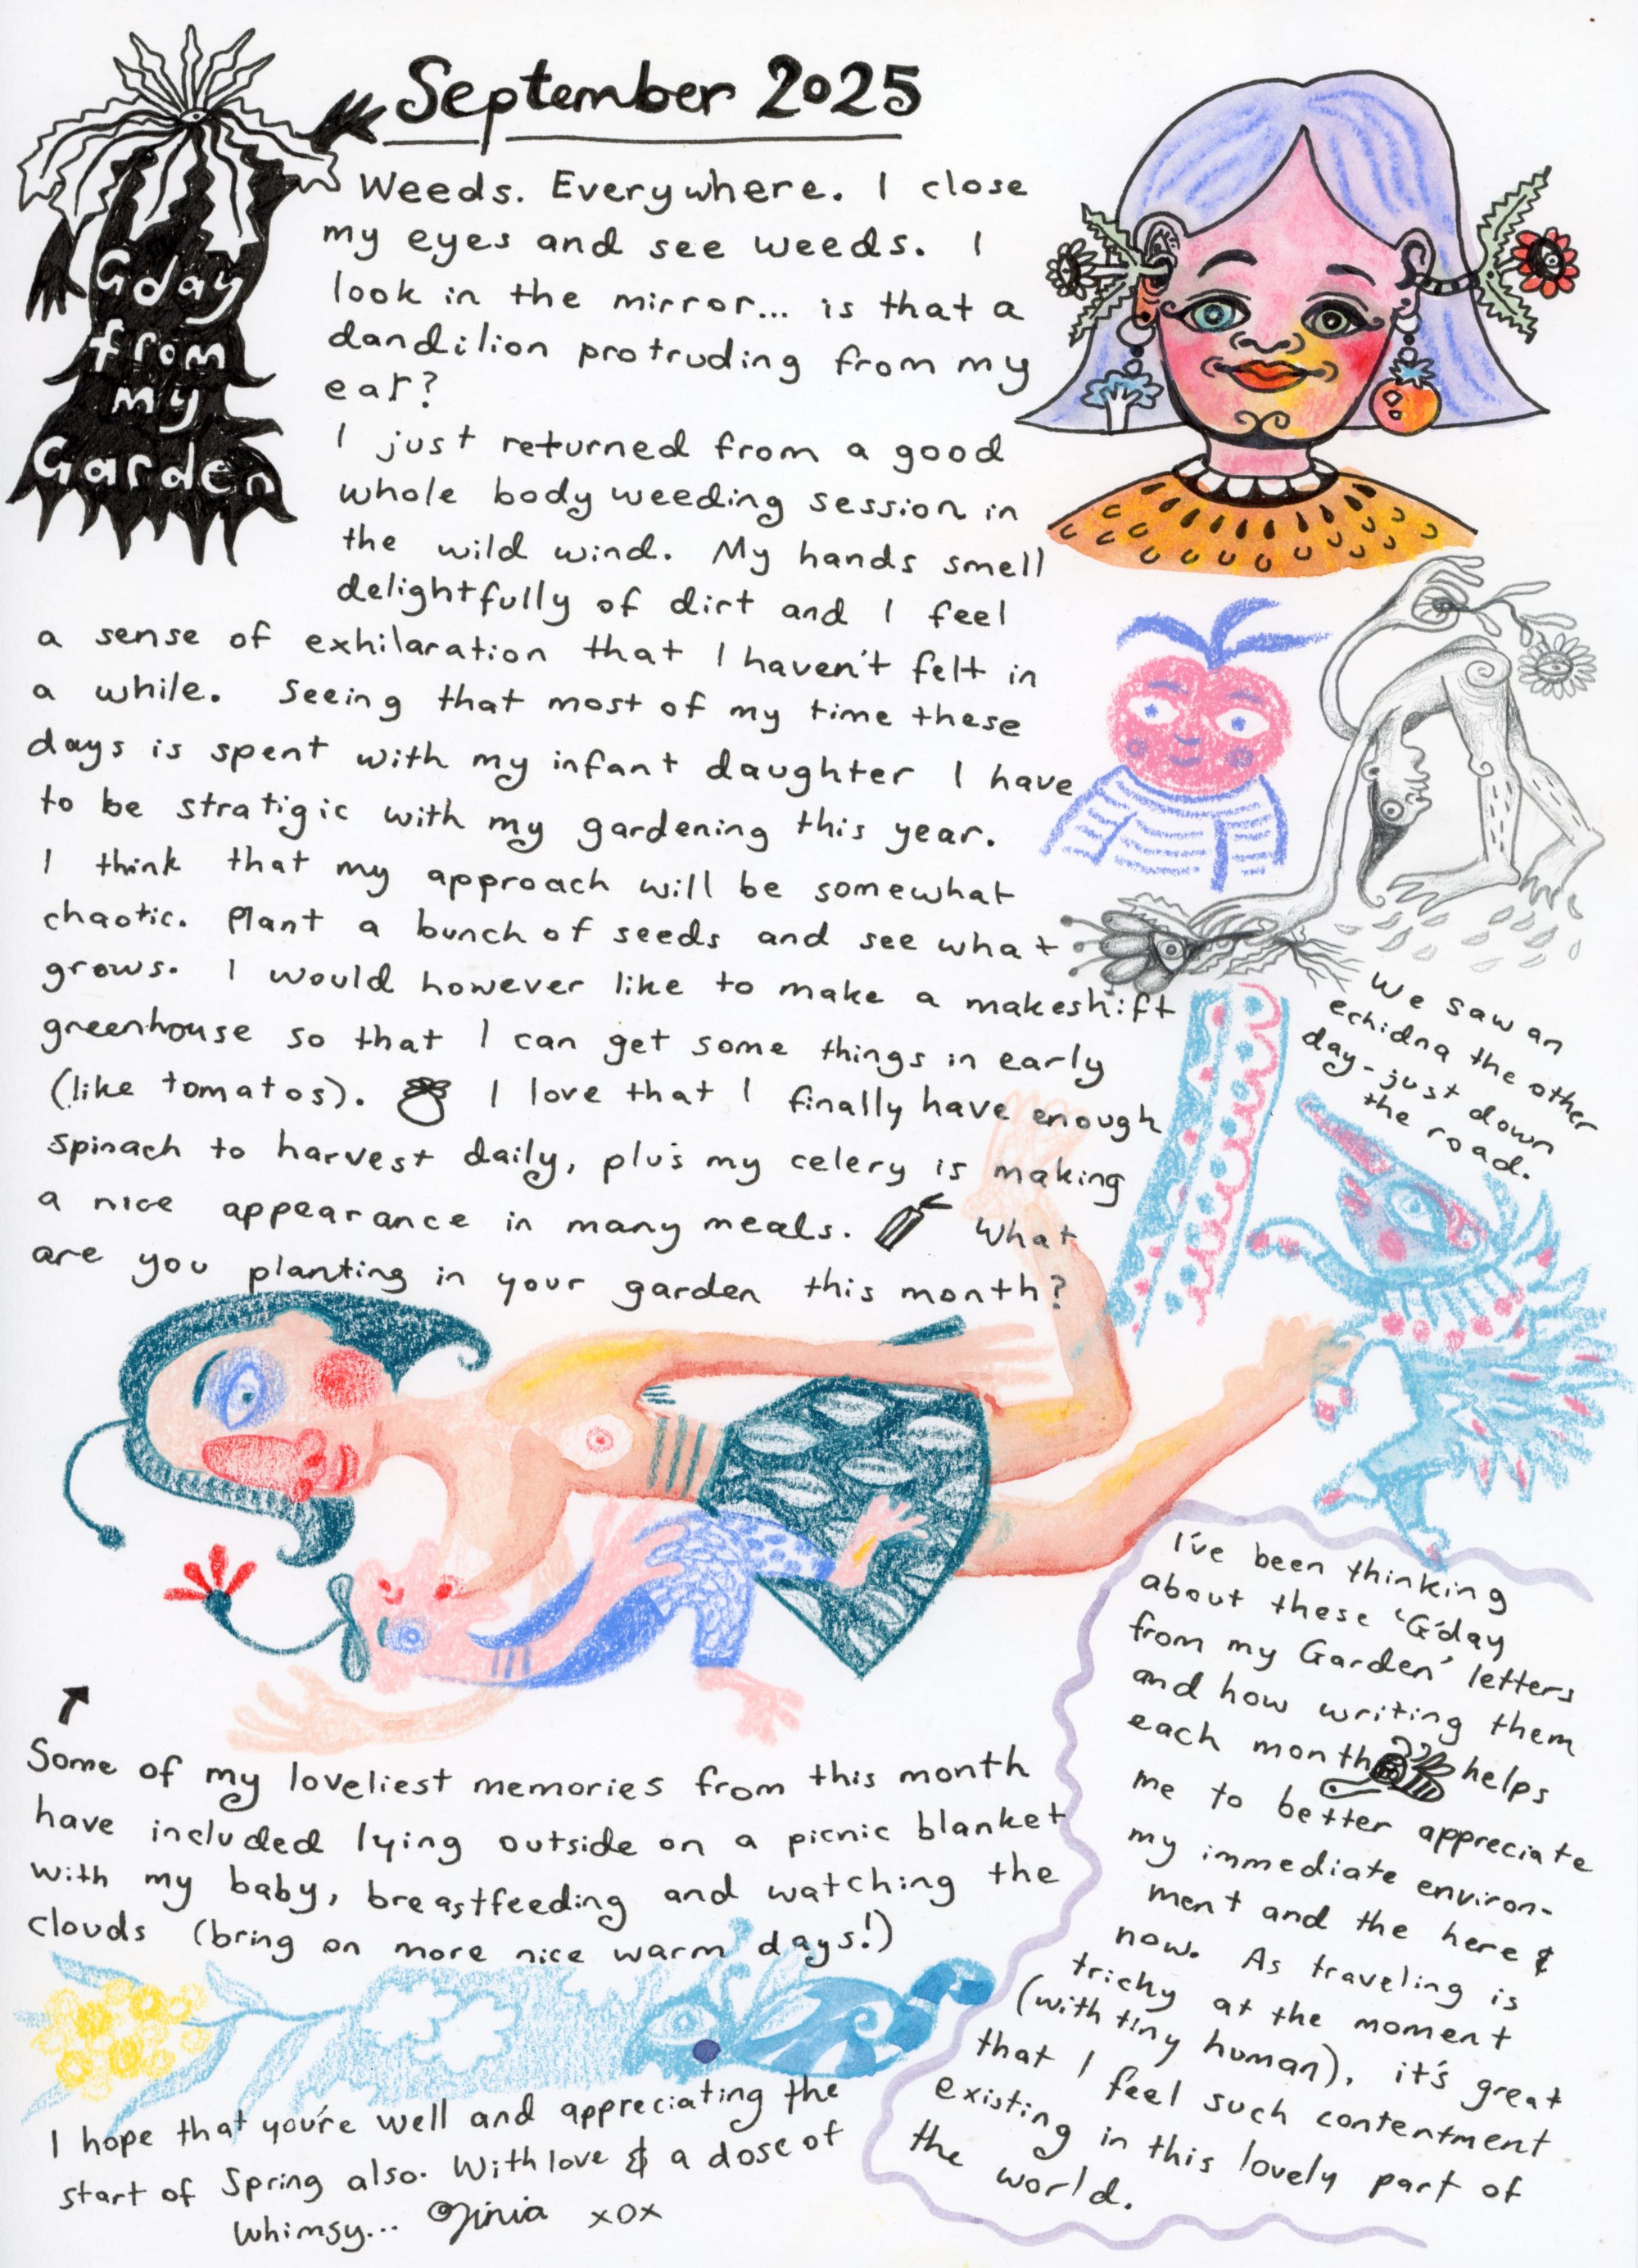 Gday
from
my
Garden
September 2025
Weeds. Everywhere. I close
my eyes and see weeds. I
look in the mirror... is that a
dandilion protruding from my
ear?
I just returned from a good
whole body weeding session in
the wild wind. My hands smell
delightfully of dirt and I feel
a sense of exhilaration that I haven't felt in
a while. Seeing that most of my time these
days is spent with my infant daughter I have
to be stratigic with my gardening this year.
I think that my approach will be somewhat
chaotic. Plant a bunch of seeds and see what
grows. I would however like to make a makeshift
greenhouse so that I can get some things in early
(like tomatos). I love that I finally have enough
spinach to harvest daily, plus my celery is making
a nice appearance in many meals. What
are you planting in your garden this month?
We saw an
echidna the other
day - just down
the road.
Some of my loveliest memories from this month
have included lying outside on a picnic blanket
with my baby, breastfeeding and watching the
clouds (bring on more nice warm days!)
I've been thinking
about these 'G'day
from my Garden' letters
and how writing them
each month helps
me to better appreciate
my immediate environ-
ment and the here &
now. As traveling is
tricky at the moment
(with tiny human), it's great
that I feel such contentment
existing in this lovely part of
the world.
I hope that you're well and appreciating the
start of Spring also. With love & a dose of
whimsy... Jinia xox